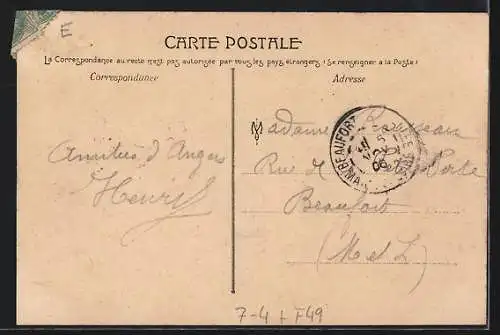 E
CARTE POSTALE
La Correspondance au recto n'est pas autorisée par tous les pays étrangers (Se renseigner à la Poste)
Correspondance
Adresse
Madame
Amitiés d'Angers
Henry
Rue Porte
Beaufort
(M et L)
BEAUFORT
7-4 + F49